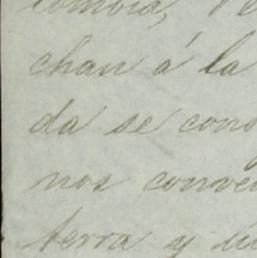 lombia, Ve
chan á la
da se cons
nos conven
terra y u